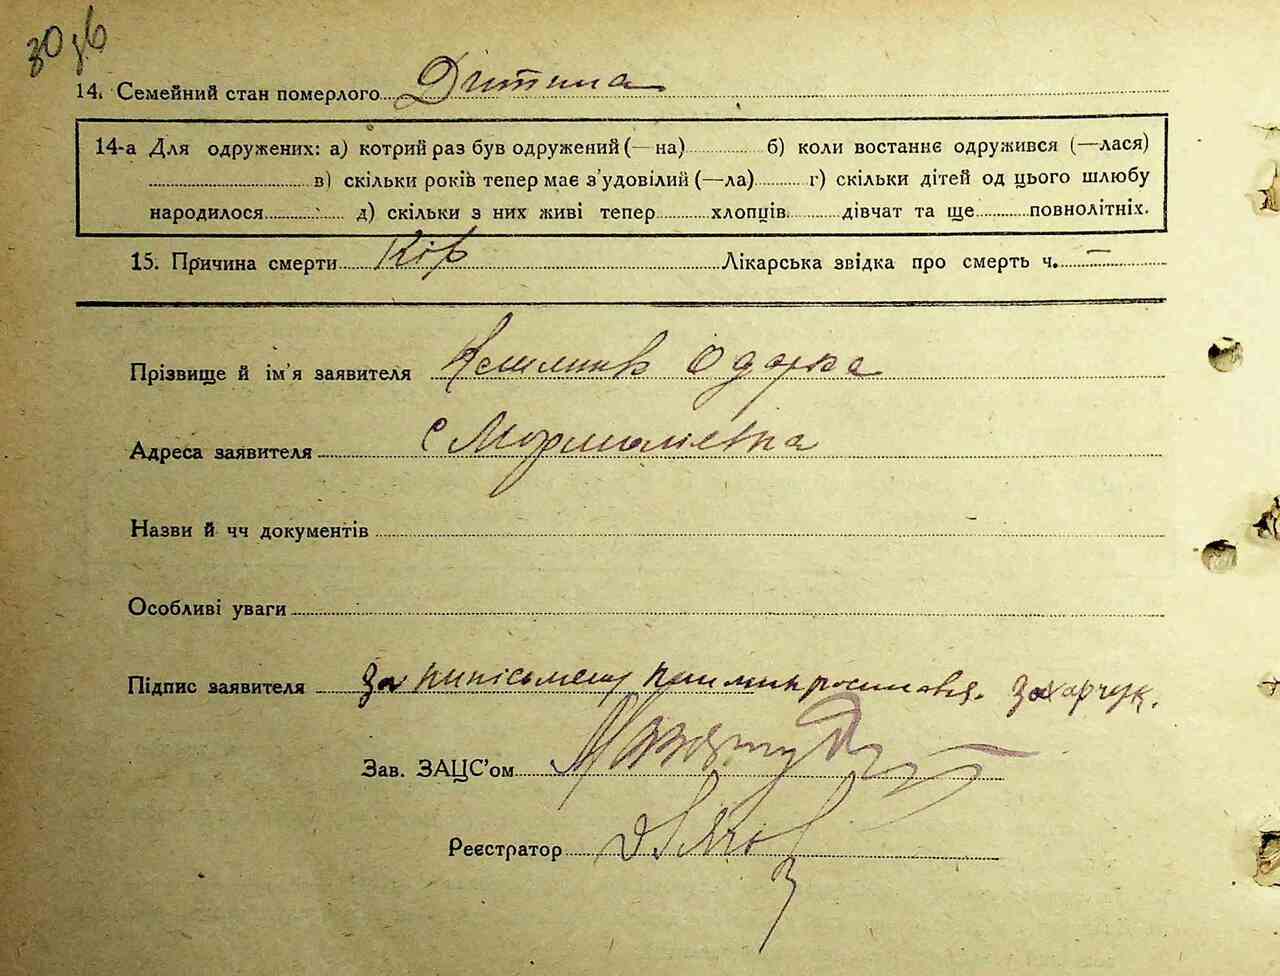 30 зв
14. Семейний стан померлого Дитина
14-а Для одружених: а) котрий раз був одружений (—на) б) коли востаннє одружився (—лася)
в) скільки років тепер має з'удовілий (—ла) г) скільки дітей од цього шлюбу
народилося д) скільки з них живі тепер хлопців дівчат та ще повнолітніх.
15. Причина смерти Кір Лікарська звідка про смерть ч. —
Прізвище й ім'я заявителя Одарка
Адреса заявителя с
Назви й чч документів
Особливі уваги
Підпис заявителя За Захарчук.
Зав. ЗАЦС'ом
Реєстратор